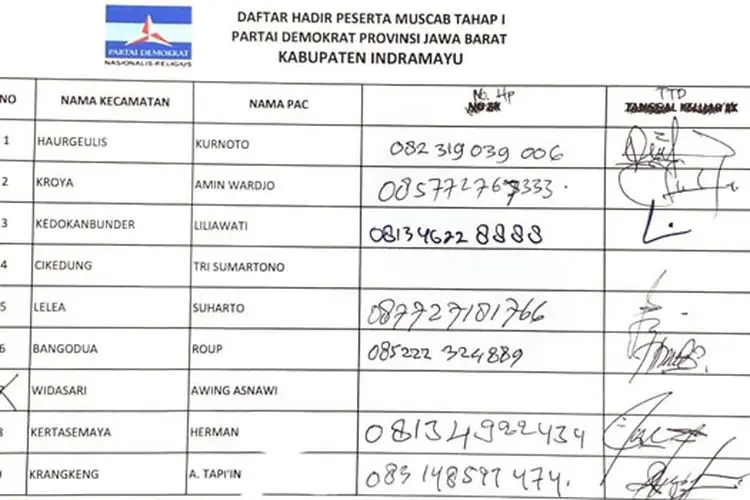 PARTAI DEMOKRAT
NASIONALIS-RELIGIUS
DAFTAR HADIR PESERTA MUSCAB TAHAP I
PARTAI DEMOKRAT PROVINSI JAWA BARAT
KABUPATEN INDRAMAYU
NO NAMA KECAMATAN NAMA PAC No. Hp TTD
1 HAURGEULIS KURNOTO 082 319 039 006
2 KROYA AMIN WARDJO
3 KEDOKANBUNDER LILIAWATI 08134622 8888
4 CIKEDUNG TRI SUMARTONO
5 LELEA SUHARTO 087727181766
6 BANGODUA ROUP 085222 324889
WIDASARI AWING ASNAWI
8 KERTASEMAYA HERMAN 08134922434
KRANGKENG A. TAPI'IN 083 148597 474.